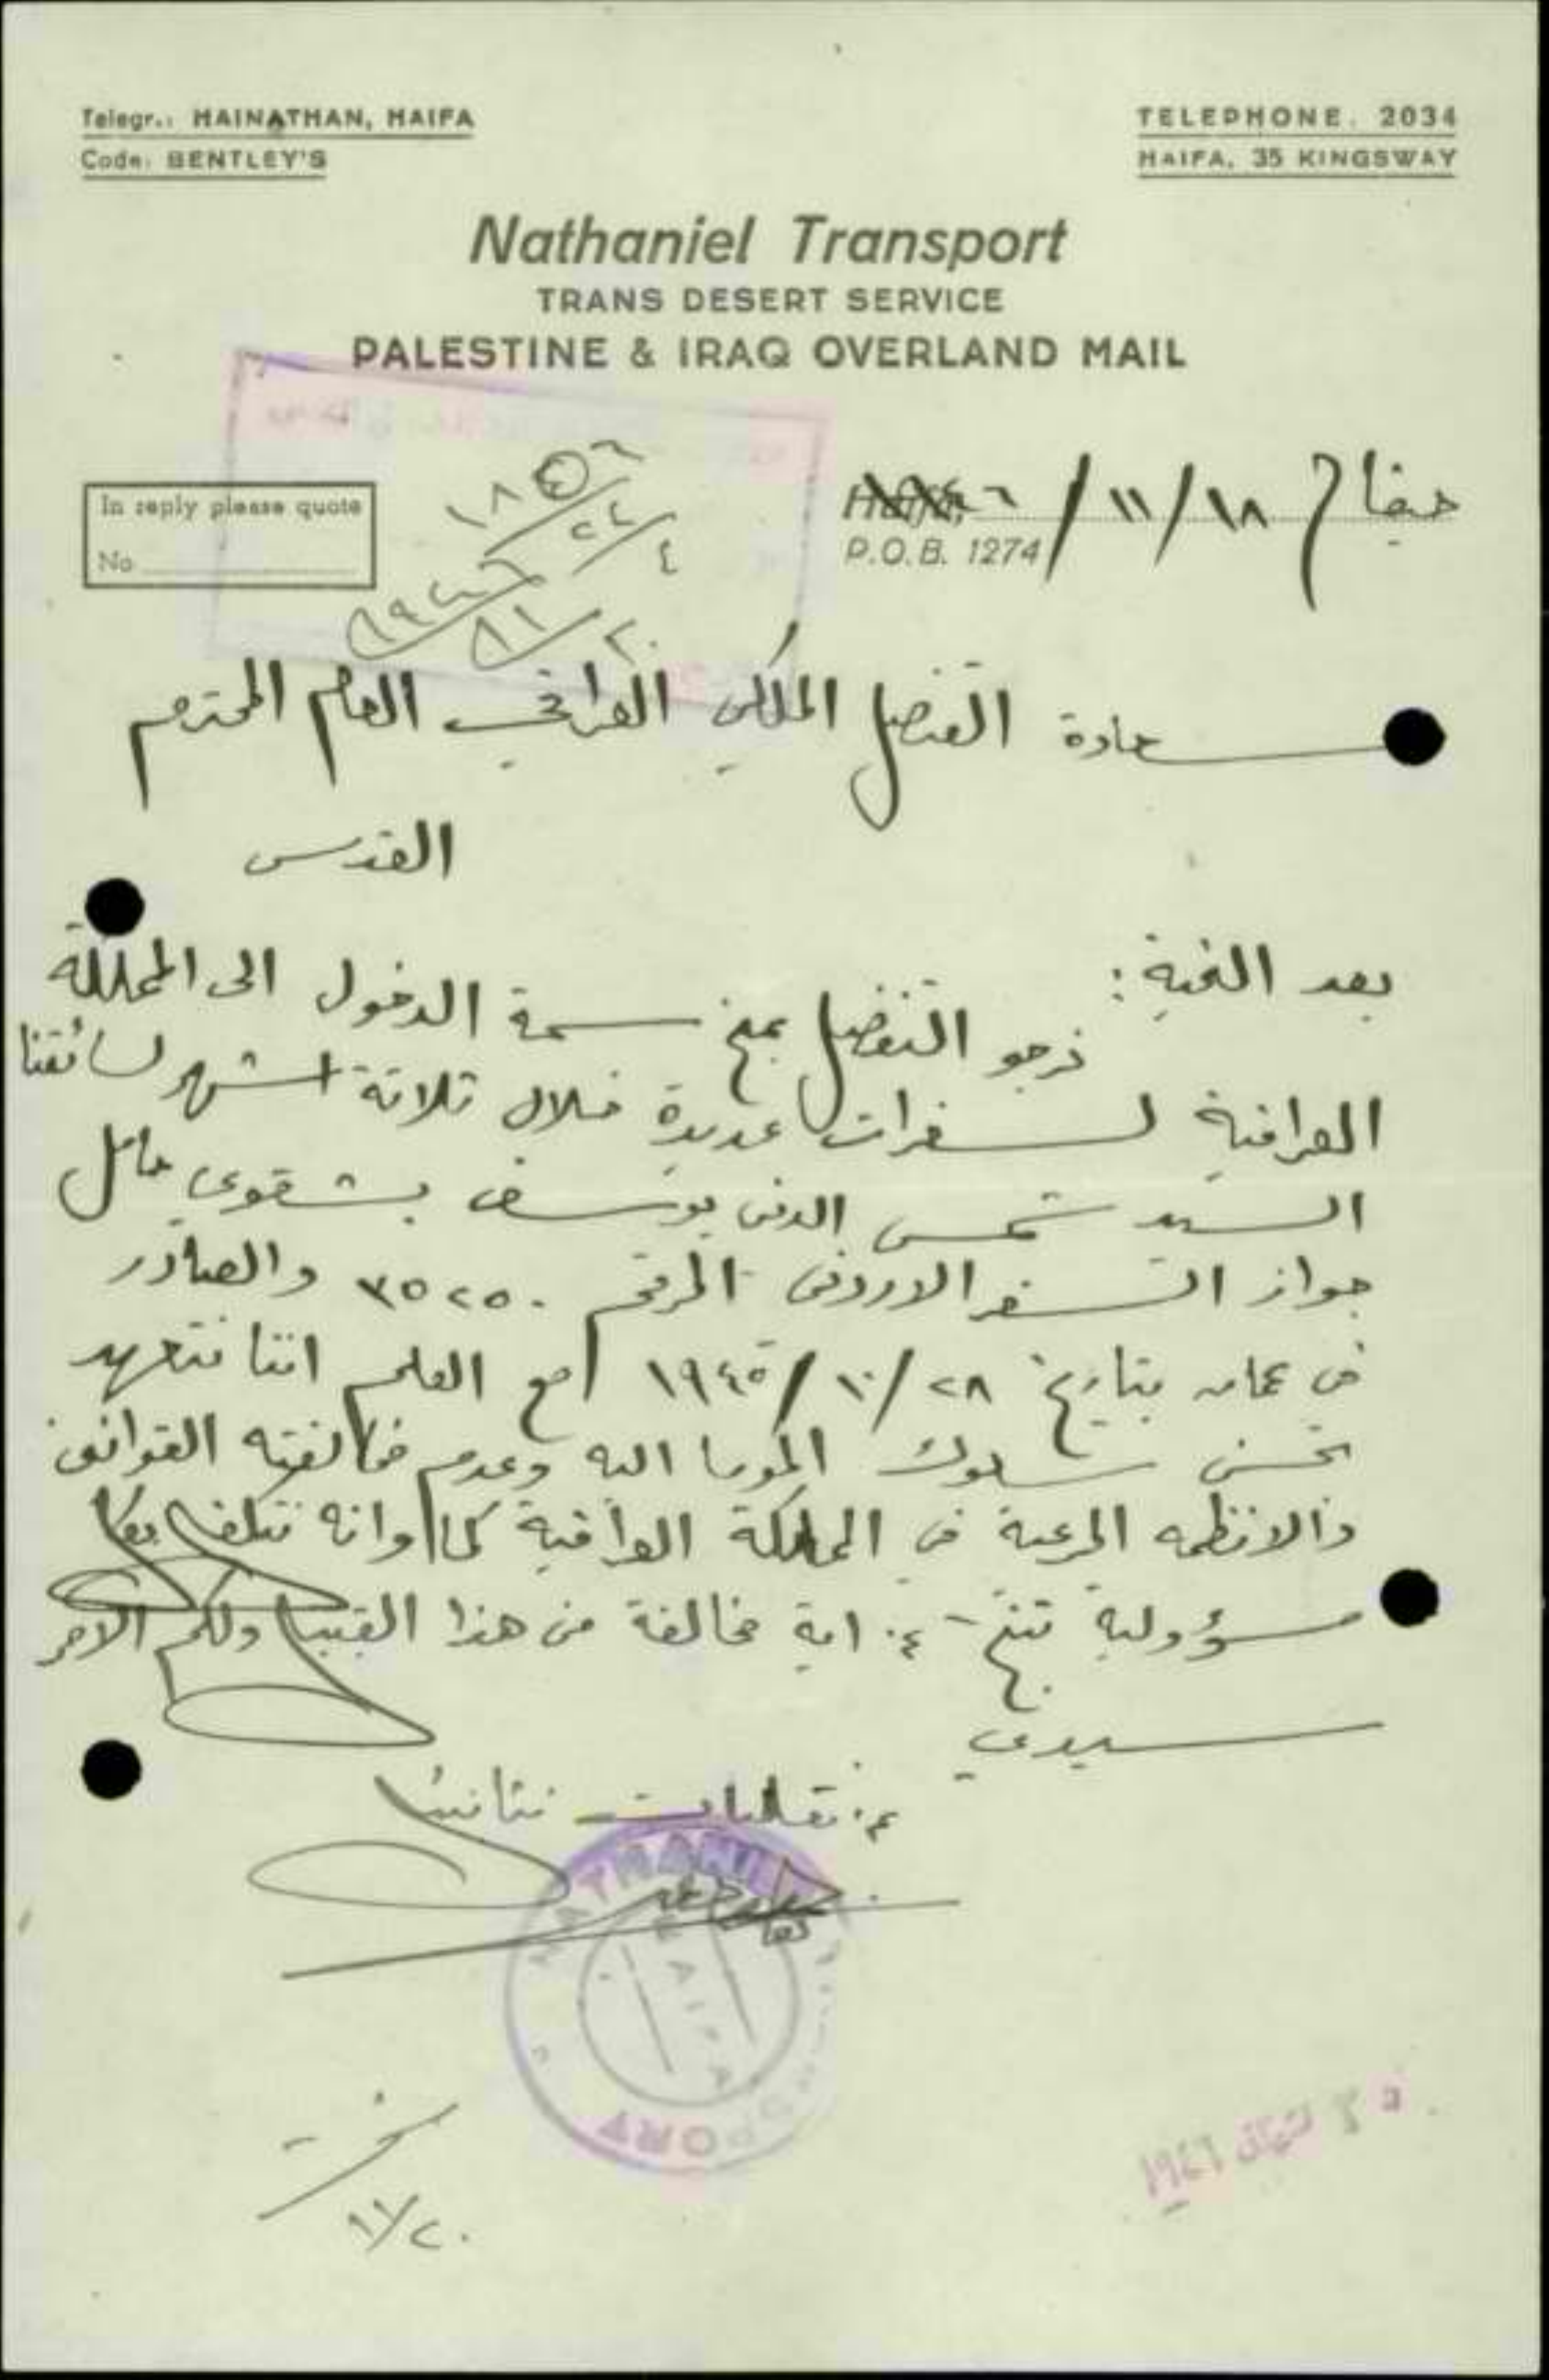 Telegr.: HAINATHAN, HAIFA
Code: BENTLEY'S
TELEPHONE. 2034
HAIFA, 35 KINGSWAY
Nathaniel Transport
TRANS DESERT SERVICE
PALESTINE & IRAQ OVERLAND MAIL
In reply please quote
No
Haifa,
حيفا في ١٨/١١/
P.O.B. 1274
سعادة القنصل الملكي العراقي العام المحترم
القدس
بعد التحية:
نرجو التفضل بمنح سمة الدخول الى المملكة
العراقية لسفرات عديدة خلال ثلاثة اشهر لسائقنا
السيد شمس الدين يوسف بشقوي حامل
جواز السفر الاردني المرقم ٣٥٢٥٠ والصادر
في عمان بتاريخ ٢٨/١٠/١٩٤٥ مع العلم اننا نتعهد
بحسن سلوك الموما اليه وعدم مخالفته القوانين
والانظمه المرعية في المملكة العراقية كما وانه نتكفل بكل
مسؤولية تنتج عن اية مخالفة من هذا القبيل ولكم الامر
سيدي
عن نقليات نتانيل
NATHANIEL
HAIFA
٢٠/١١
١٩٤٦